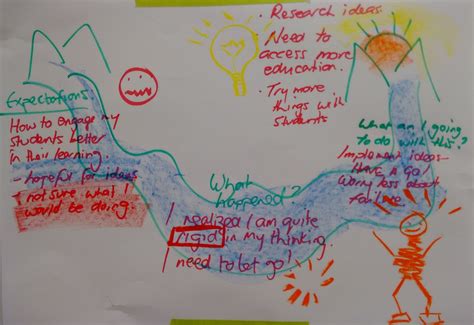 Expectations
How to engage my
students better
in their learning.
- hopeful for ideas
- not sure what I
would be doing.
• Research ideas.
• Need to
access more
education.
• Try more
things with
students
What
happened?
I realized I am quite
rigid in my thinking.
I need to let go!
What am I going
to do with this?
Implement ideas -
Have a go
Worry less about
failure